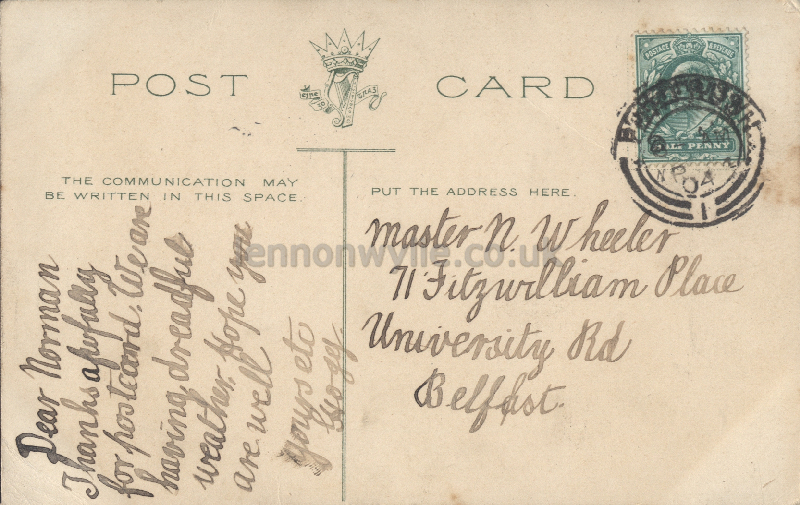 POST CARD
THE COMMUNICATION MAY
BE WRITTEN IN THIS SPACE.
PUT THE ADDRESS HERE.
POSTAGE & REVENUE
HALF PENNY
04
1
Dear Norman
Thanks awfully
for postcard. We are
having dreadful
weather. Hope you
are well
yours etc
master N. Wheeler
71 Fitzwilliam Place
University Rd
Belfast.
lennonwylie.co.uk